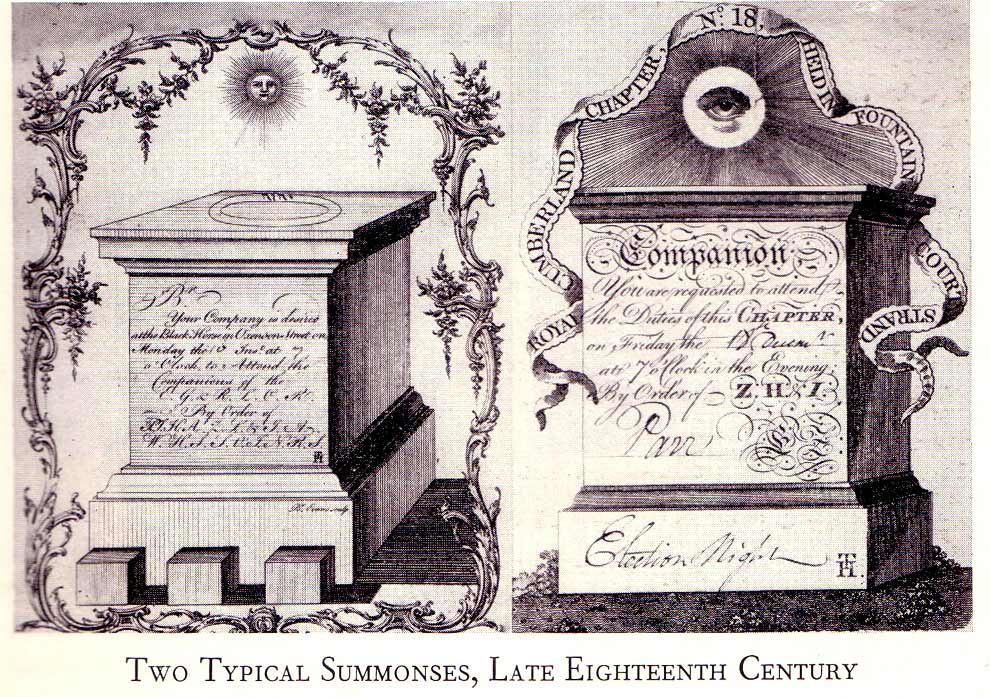 Your Company is desired
at the Black Horse in Oxendon Street on
Monday the Inst. at
o'Clock, to Attend the
Companions of the
G & R
By Order of
W. H. S. S.
ROYAL CUMBERLAND CHAPTER, No. 18, HELD IN FOUNTAIN COURT STRAND
Companion
You are requested to attend
the Duties of this CHAPTER,
on Friday the
at 7 o'Clock in the Evening:
By Order of Z, H & I.
Parr
Election Night
TH
TWO TYPICAL SUMMONSES, LATE EIGHTEENTH CENTURY